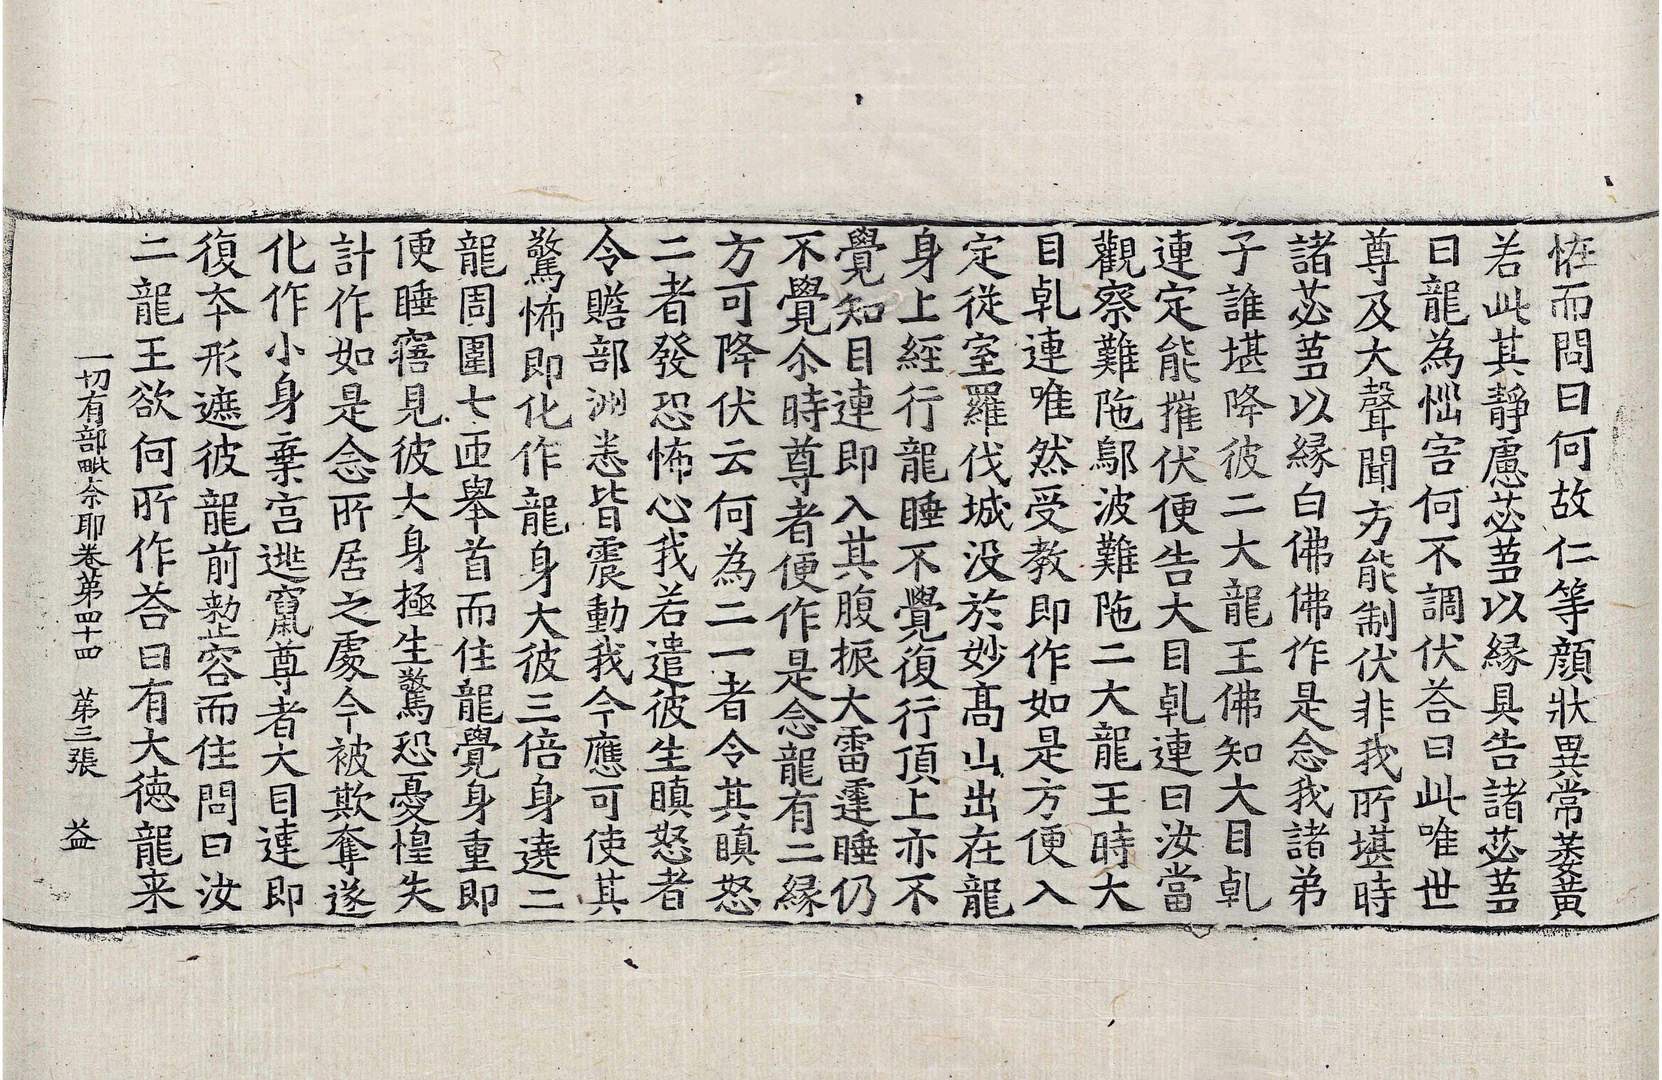 恠而問曰何故仁等顔狀異常萎黃
若此其靜慮苾蒭以縁具告諸苾蒭
曰龍為惱害何不調伏荅曰此唯世
尊及大聲聞方能制伏非我所堪時
諸苾蒭以縁白佛佛作是念我諸弟
子誰堪降彼二大龍王佛知大目乹
連定能摧伏便告大目乹連曰汝當
觀察難陁鄔波難陁二大龍王時大
目乹連唯然受教即作如是方便入
定從室羅伐城没於妙髙山出在龍
身上經行龍睡不覺復行頂上亦不
覺知目連即入其腹振大雷霆睡仍
不覺尒時尊者便作是念龍有二縁
方可降伏云何為二一者令其瞋怒
二者發恐怖心我若遣彼生瞋怒者
令贍部洲悉皆震動我今應可使其
驚怖即化作龍身大彼三倍身遶二
龍周圍七匝舉首而住龍覺身重即
便睡寤見彼大身極生驚恐憂惶失
計作如是念所居之處今被欺奪遂
化作小身棄宮逃竄尊者大目連即
復夲形遮彼龍前勑容而住問曰汝
二龍王欲何所作荅曰有大德龍来
一切有部毗奈耶卷第四十四　第三張　益